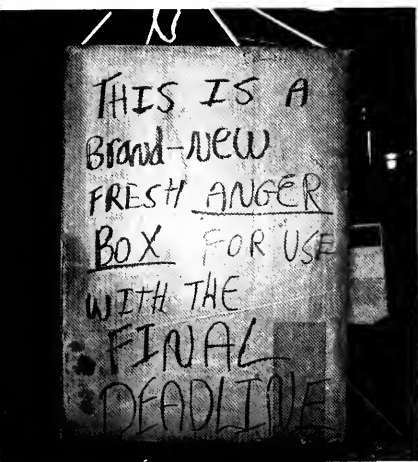 THIS IS A
Brand-New
FRESH ANGER
BOX FOR USE
WITH THE
FINAL
DEADLINE